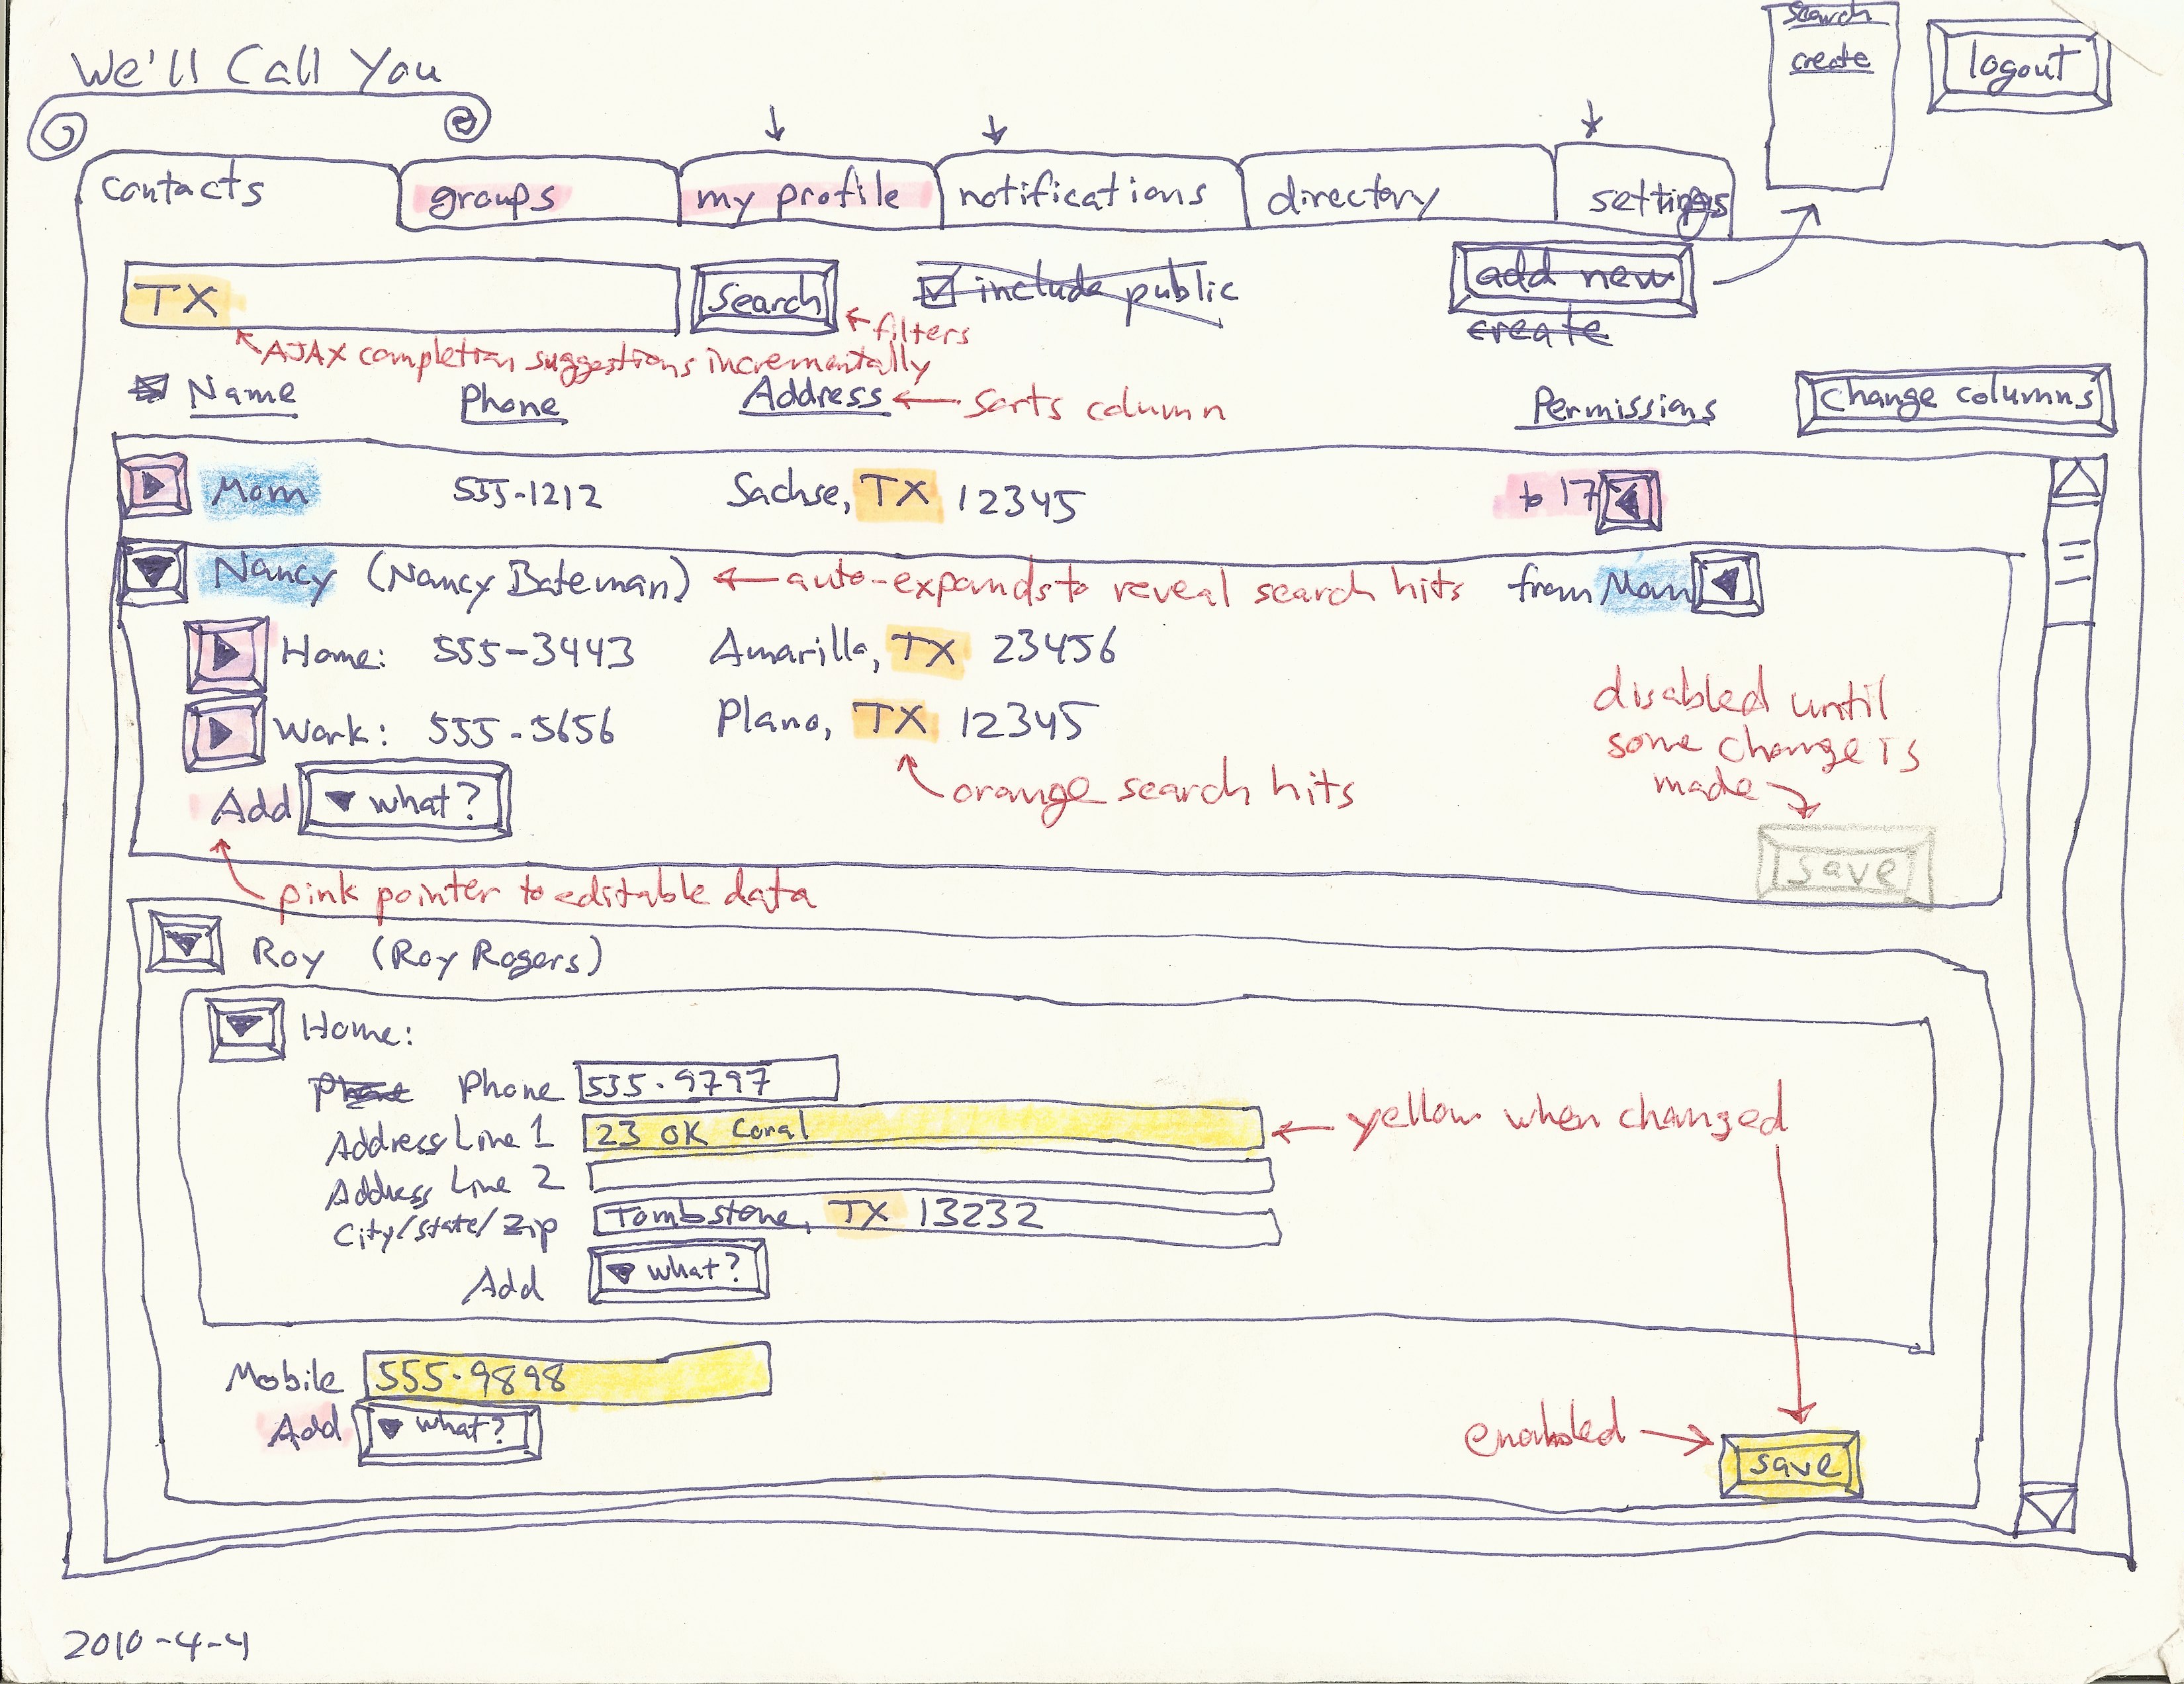 We'll Call You
search
create
logout
contacts groups my profile notifications directory settings
TX Search include public add new
filters create
AJAX completion suggestions incrementally
Name Phone Address sorts column Permissions Change columns
Mom 555-1212 Sachse, TX 12345 to 17
Nancy (Nancy Bateman) auto-expands to reveal search hits from Mom
Home: 555-3443 Amarillo, TX 23456
Work: 555-5656 Plano, TX 12345
disabled until
some change is
made
Add what? orange search hits
save
pink pointer to editable data
Roy (Roy Rogers)
Home:
Phone Phone 555-9797
Address Line 1 23 OK Coral yellow when changed
Address Line 2
City/state/zip Tombstone, TX 13232
Add what?
Mobile 555-9898
Add what? enabled
save
2010-4-4